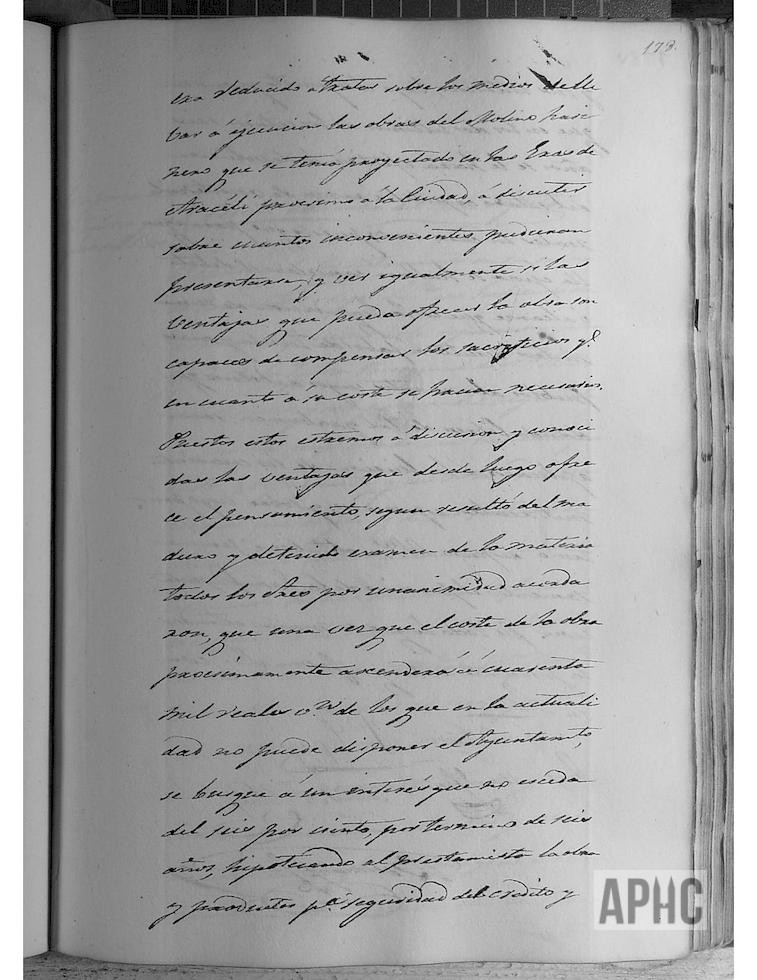 178.
era reducido a tratar sobre los medios de lle
bar á ejecucion las obras del Molino hari
nero que se tenia proyectado en las Eras de
Aracéli procsimo á la Ciudad, á discutir
sobre cuantos inconvenientes pudieran
presentarse, y ver igualmente si las
ventajas que pueda ofrecer la obra son
capaces de compensar los sacrificios q.e
en cuanto á su coste se hacian necesarios.
Puestos estos estremos á discusion y conoci
das las ventajas que desde luego ofre
ce el pensamiento, segun resultó del ma
duro y detenido examen de la materia
todos los Sres por unanimidad acorda
ron, que una vez que el coste de la obra
procsimamente ascenderá á cuarenta
mil reales v.n de los que en la actuali
dad no puede disponer el Ayuntamto,
se busque á un interés que no esceda
del seis por ciento, por termino de seis
años, hipotecando al prestamista la obra
y productos p.a seguridad del credito y
APHC